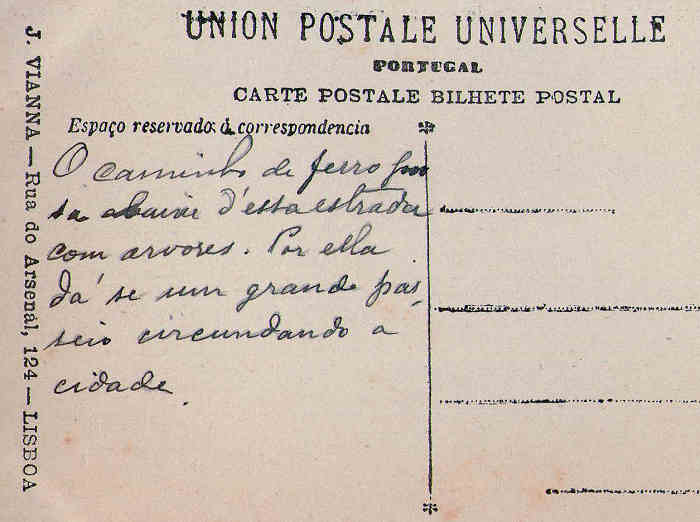 UNION POSTALE UNIVERSELLE
PORTUGAL
CARTE POSTALE BILHETE POSTAL
Espaço reservado á correspondencia
O caminho de ferro pas
sa abaixo d'essa estrada
com arvores. Por ella
dá se um grande pas-
seio circundando a
cidade.
J. VIANNA — Rua do Arsenal, 124 — LISBOA